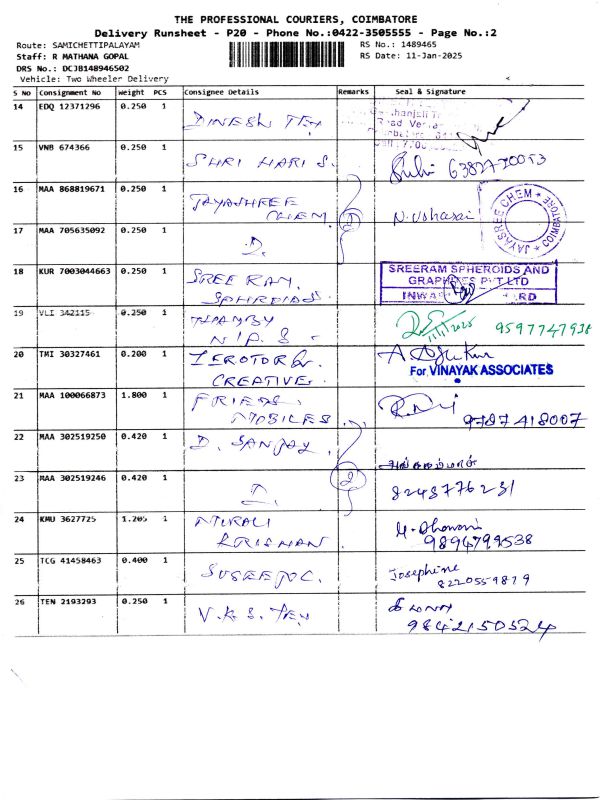 THE PROFESSIONAL COURIERS, COIMBATORE
Delivery Runsheet - P20 - Phone No.:0422-3505555 - Page No.:2
Route: SAMICHETTIPALAYAM RS No.: 1489465
Staff: R MATHANA GOPAL RS Date: 11-Jan-2025
DRS No.: DCJB148946502
Vehicle: Two Wheeler Delivery
S No Consignment No Weight PCS Consignee Details Remarks Seal & Signature
14 EDQ 12371296 0.250 1 DINESH TEX
15 VNB 674366 0.250 1 SHRI HARI S.
16 MAA 868819671 0.250 1 JAYASHREE CHEM. 2 N. Ushasai
JAYASREE CHEM COIMBATORE
17 MAA 705635092 0.250 1 D.
18 KUR 7003044663 0.250 1 SREE RAM. SPHROIDS
SREERAM SPHEROIDS AND
GRAPHITES PVT LTD
19 VLI 342115 0.250 1 11/1/2025
20 TMI 30327461 0.200 1 ZEROTOR CREATIVE.
For VINAYAK ASSOCIATES
21 MAA 100066873 1.800 1 FRIENDS MOBILES 9787418007
22 MAA 302519250 0.420 1 D. SANJAY.
23 MAA 302519246 0.420 1 D. 2 8243776231
24 KMU 3627725 1.205 1 MURALI KRISHNAN. 9894799538
25 TCG 41458463 0.400 1 Josephine 8220559819
26 TEN 2193293 0.250 1 V.K.S. TEX 9842150524